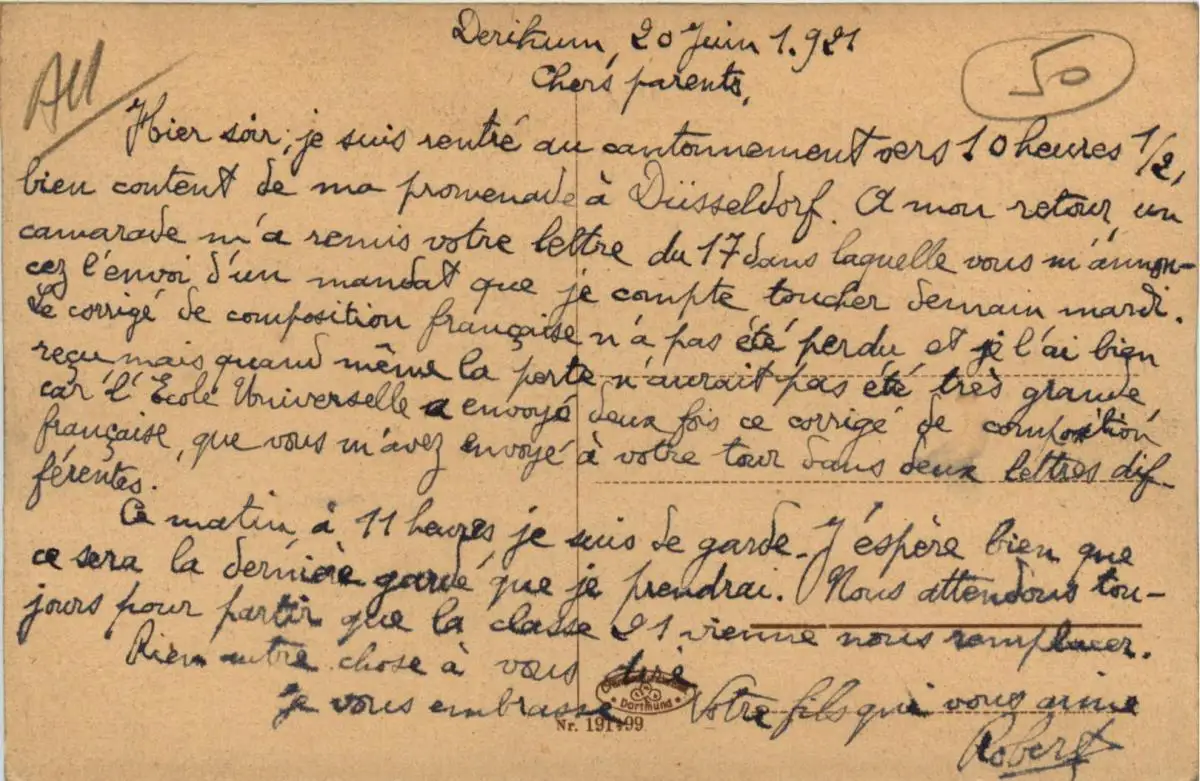 Derikum, 20 Juin 1.921
Chers parents,
All
50
Hier soir, je suis rentré au cantonnement vers 10 heures 1/2,
bien content de ma promenade à Düsseldorf. A mon retour, un
camarade m'a remis votre lettre du 17 dans laquelle vous m'annon-
cez l'envoi d'un mandat que je compte toucher demain mardi.
Le corrigé de composition française n'a pas été perdu et je l'ai bien
reçu mais quand même la perte n'aurait pas été très grande,
car l'Ecole Universelle a envoyé deux fois ce corrigé de composition
française, que vous m'avez envoyé à votre tour dans deux lettres dif-
férentes.
Ce matin, à 11 heures, je suis de garde. J'éspère bien que
ce sera la dernière garde que je prendrai. Nous attendons tou-
jours pour partir que la classe 21 vienne nous remplacer.
Rien autre chose à vous dire
je vous embrasse Votre fils qui vous aime
Robert
Dortmund
Nr. 191499